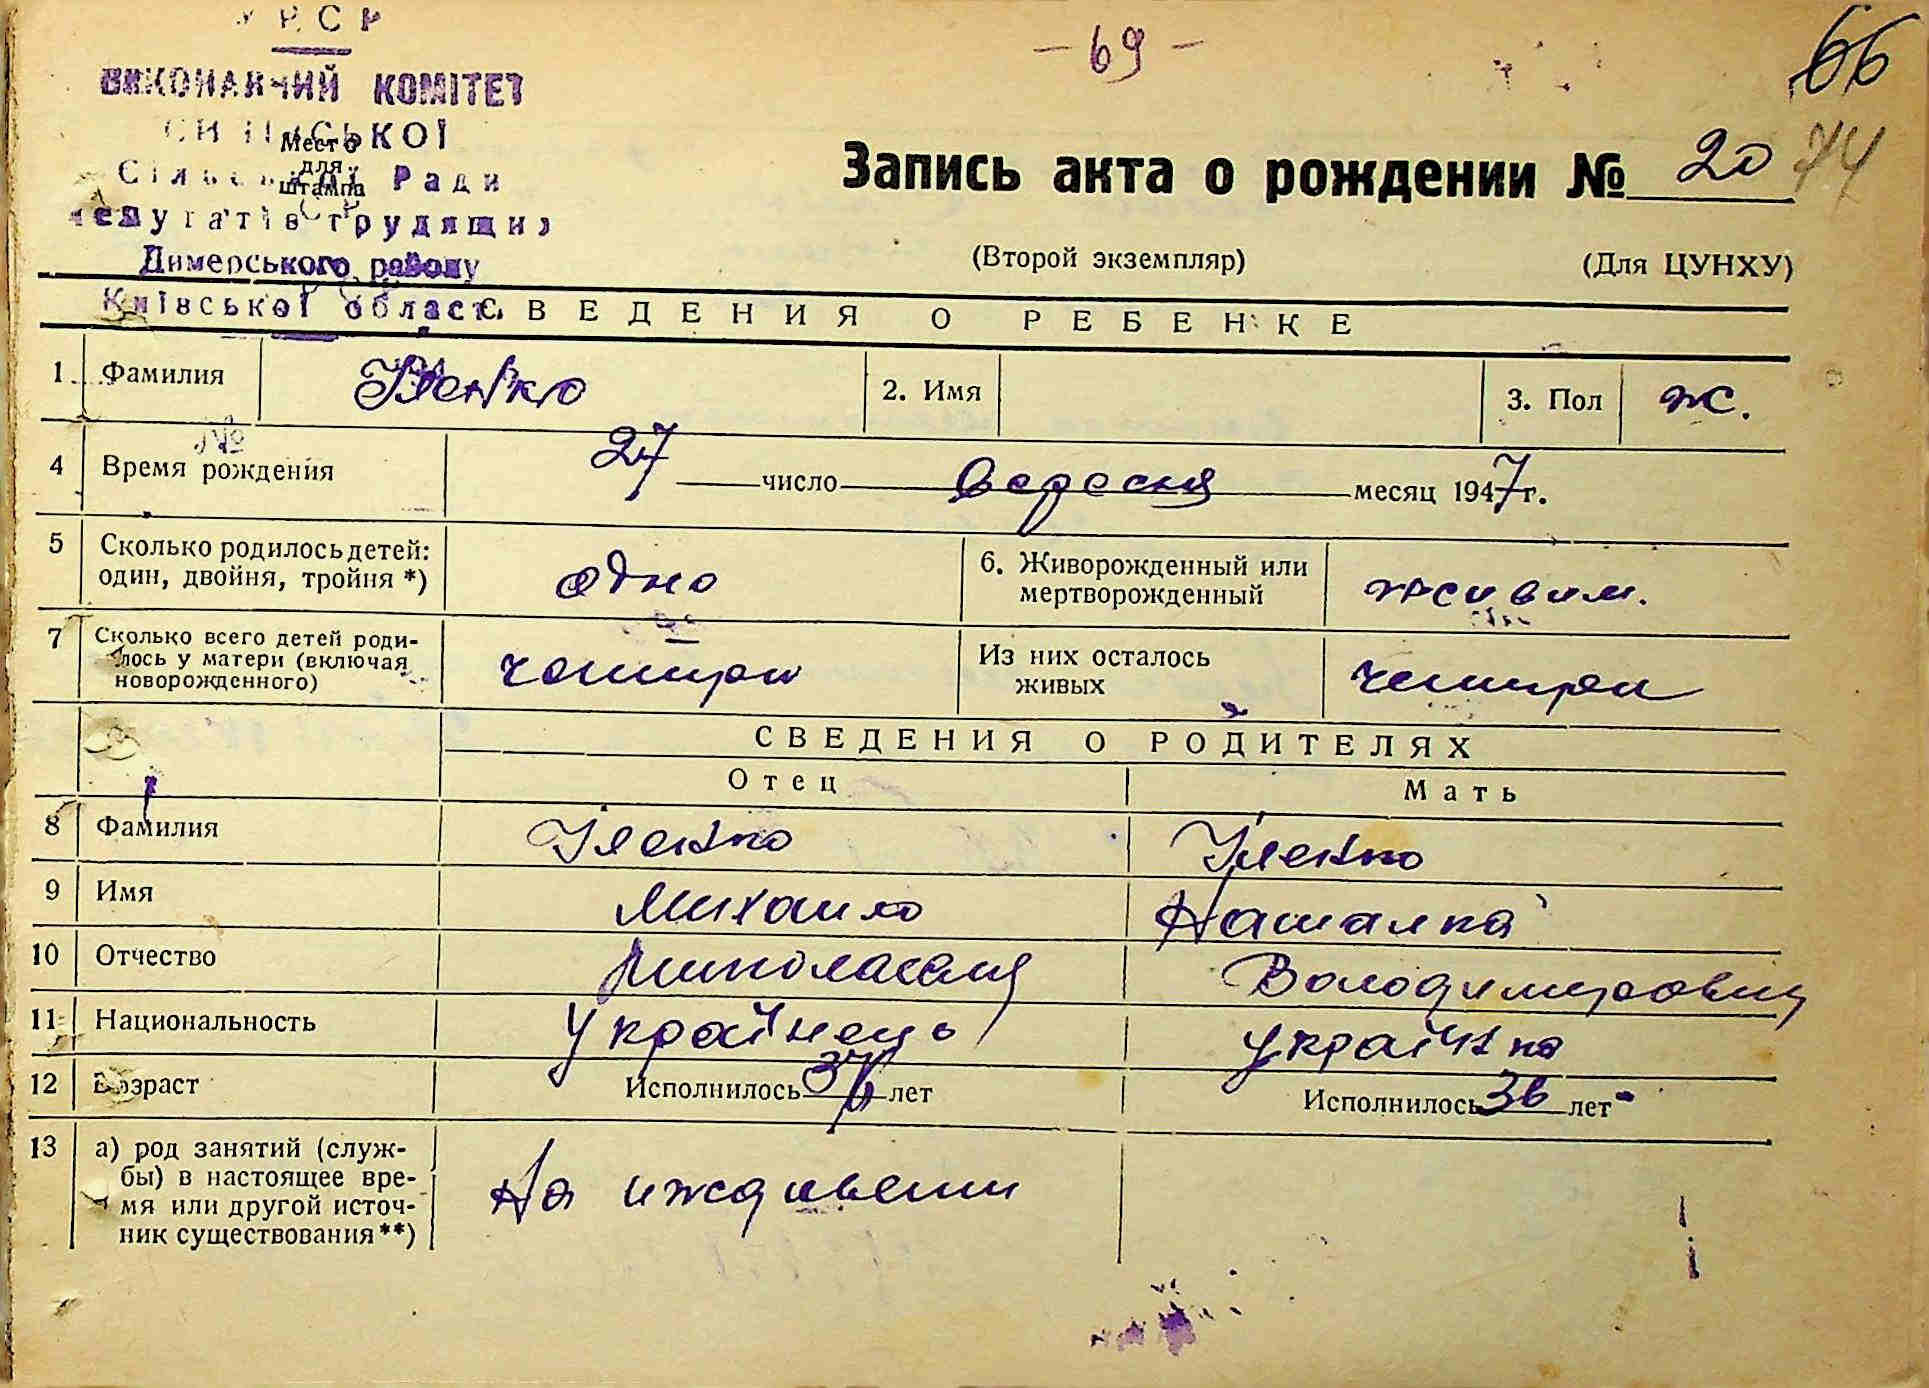 УРСР
- 69 -
66
ВИКОНАВЧИЙ КОМІТЕТ
74
Место
для
штампа
Сільської Ради
депутатів трудящих
Димерського району
Київської області
Запись акта о рождении № 20
(Второй экземпляр) (Для ЦУНХУ)
СВЕДЕНИЯ О РЕБЕНКЕ
1. Фамилия 2. Имя 3. Пол ж.
№
4 Время рождения 27 число вересня месяц 1947 г.
5 Сколько родилось детей: один, двойня, тройня *) одно 6. Живорожденный или мертворожденный живим.
7 Сколько всего детей родилось у матери (включая новорожденного) четири Из них осталось живых четири
СВЕДЕНИЯ О РОДИТЕЛЯХ
Отец Мать
8 Фамилия Іленко Іленко
9 Имя Михайло Наталка
10 Отчество Володимировна
11 Национальность Українець українка
12 Возраст Исполнилось лет Исполнилось 36 лет
13 а) род занятий (службы) в настоящее время или другой источник существования **) На иждивении